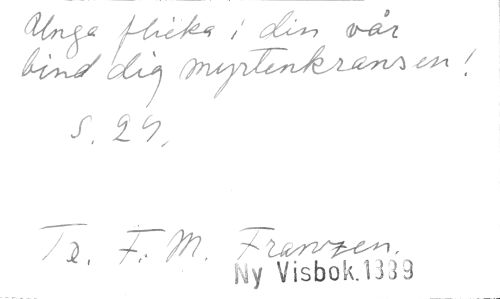 Unga flicka i din vår
bind dig myrtenkransen!
S. 24.
Te. F. M. Franzen.
Ny Visbok. 1339